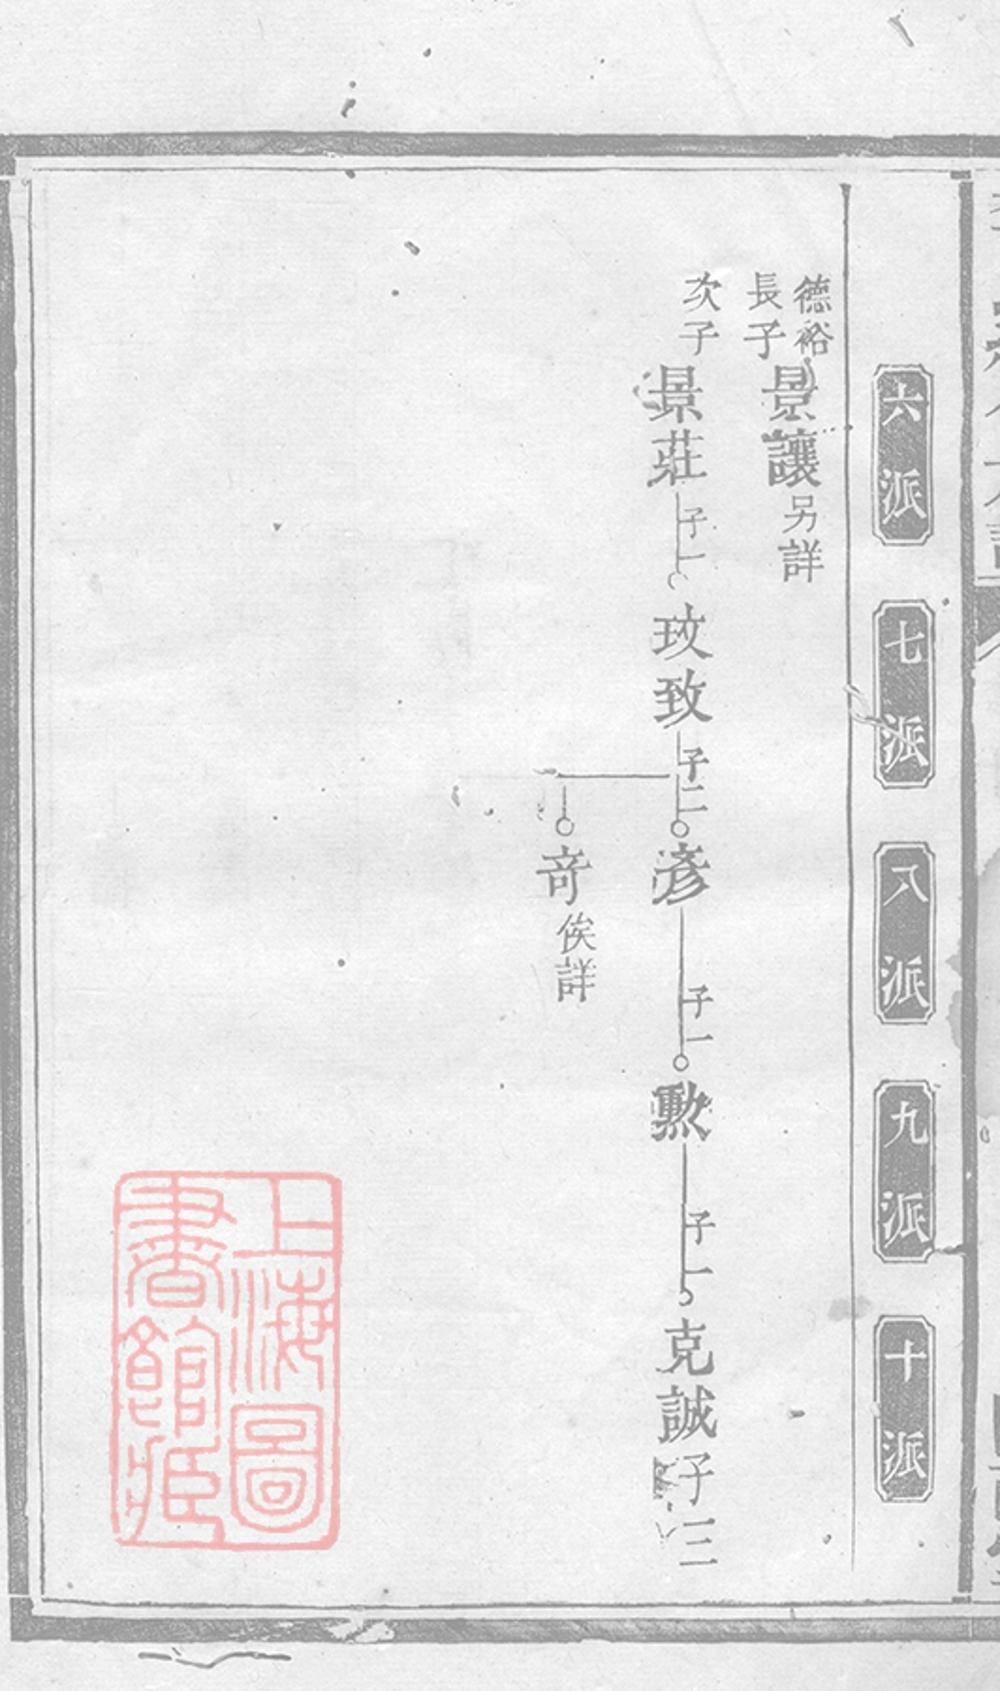 六派
七派
八派
九派
十派
德裕
長子
景讓
另詳
次子
景莊
子一
玟致
子二
彥
子一
勲
子一
克誠
子三
奇
俟詳
上海圖
書館藏